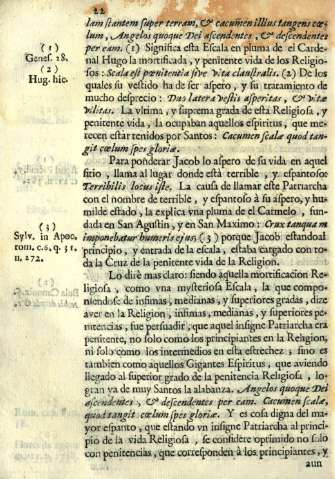 22
lam stantem super terram, & cacumen illius tangens cœ-
lum, Angelos quoque Dei ascendentes, & descendentes
per eam. (1) Significa esta Escala en pluma de el Carde-
nal Hugo la mortificada, y penitente vida de los Religio-
sos: Scala est pœnitentia sive vita claustralis. (2) De los
quales su vestido ha de ser aspero, y su tratamiento de
mucho desprecio: Duo latera vestis asperitas, & vitæ
vilitas. La vltima, y suprema grada de esta Religiosa, y
penitente vida, la ocupaban aquellos espiritus, que me-
recen estar tenidos por Santos: Cacumen scalæ quod tan-
git cœlum spes gloriæ.
(1)
Genes. 28.
(2)
Hug. hic.
Para ponderar Jacob lo aspero de su vida en aquel
sitio, llama al lugar donde està terrible, y espantoso:
Terribilis locus iste. La causa de llamar este Patriarcha
con el nombre de terrible, y espantoso à su aspero, y hu-
milde estado, la explica vna pluma de el Carmelo, fun-
dada en San Agustin, y en San Maximo: Crux tanquam
imponebatur humeris ejus (3) porque Jacob estando al
principio, y entrada de la escala, estaba cargado con to-
da la Cruz de la penitente vida de la Religion.
(3)
Sylv. in Apoc.
rom. c.6. q. 31.
n. 272.
Lo dirè mas claro: siendo aquella mortificacion Re-
ligiosa, como vna mysteriosa Escala, la que compo-
niendose de infimas, medianas, y superiores gradas, dize
aver en la Religion, infimas, medianas, y superiores pe-
nitencias; fue persuadir, que aquel insigne Patriarcha era
penitente, no solo como los principiantes en la Religion,
ni solo como los intermedios en esta estrechèz; sino es
tambien como aquellos Gigantes Espiritus, que aviendo
llegado al superior grado de la penitencia Religiosa, lo-
gran va de muy Santos la alabanza. Angelos quoque Dei
ascendentes, & descendentes per eam. Cacumen scalæ,
quod tangit cœlum spes gloriæ. Y es cosa digna del ma-
yor espanto, que estando vn insigne Patriarcha al princi-
pio de la vida Religiosa, se considere oprimido no solo
con penitencias, que corresponden à los principiantes, y
aun